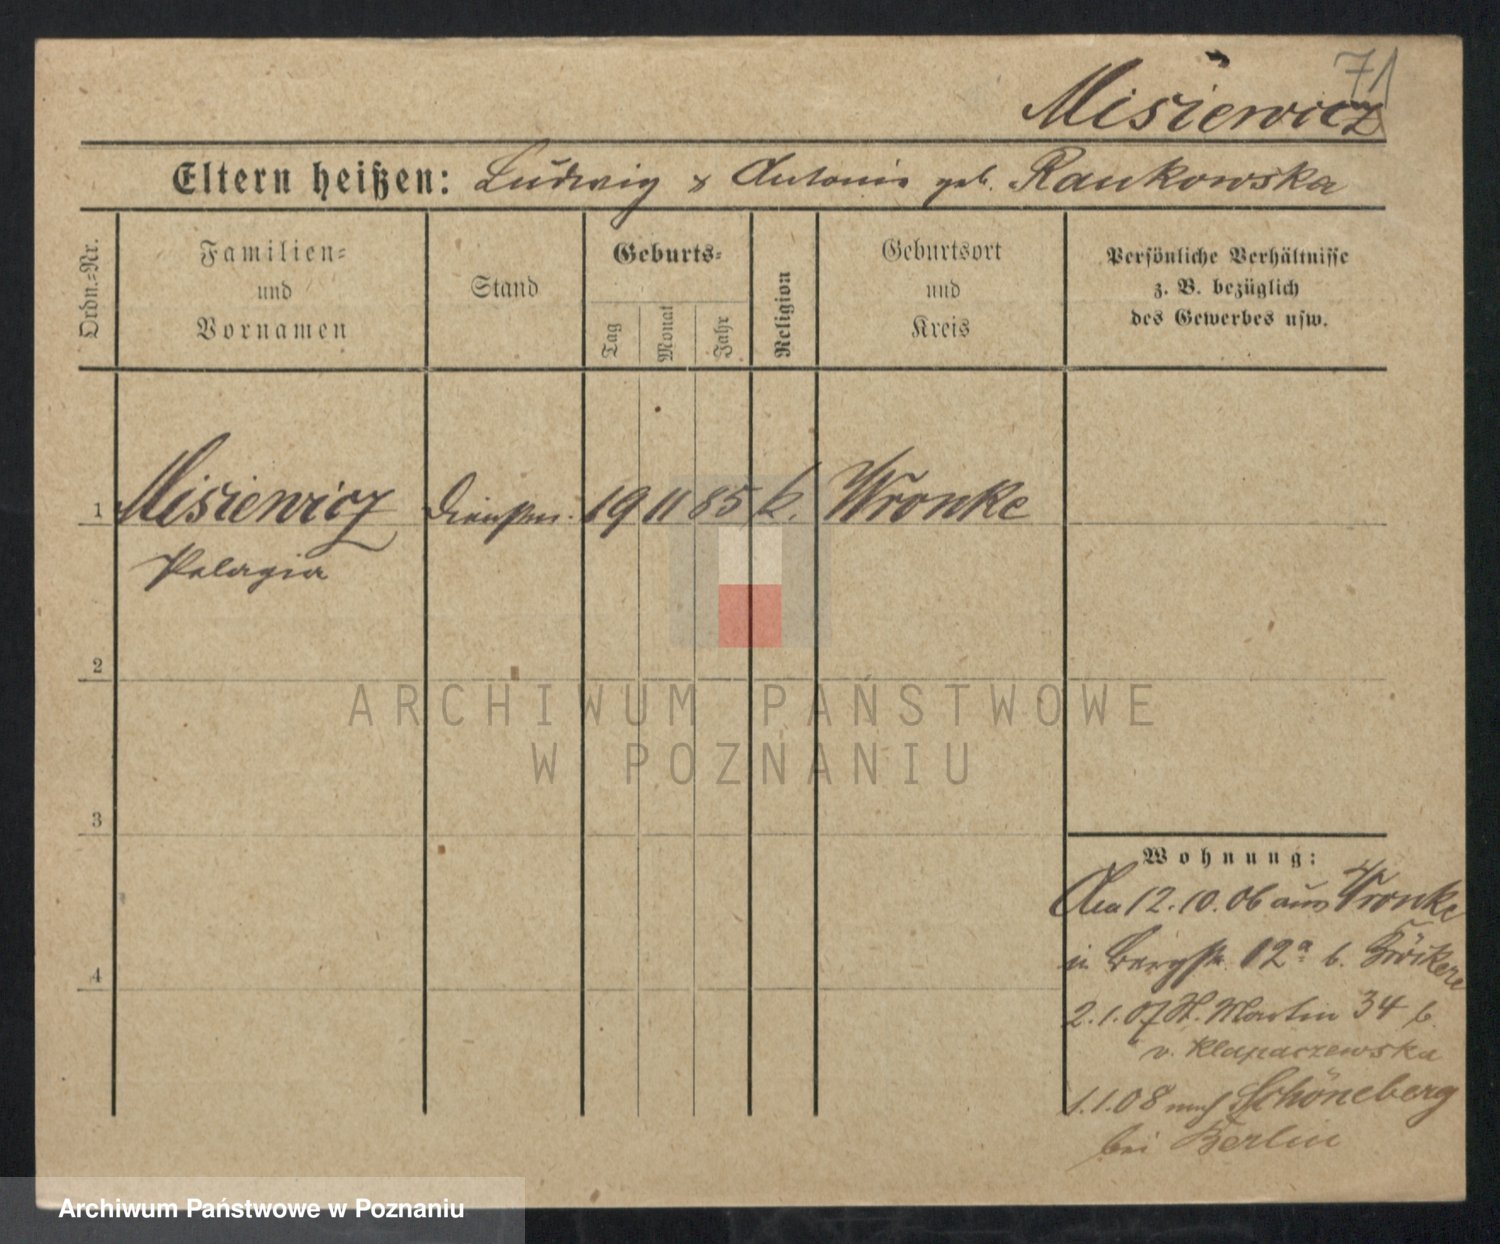 71
Misiewicz
Eltern heißen: Ludwig & Antonie geb. Rankowska
Ordn.-Nr.
Familien- und Vornamen
Stand
Geburts-
Tag
Monat
Jahr
Religion
Geburtsort und Kreis
Persönliche Verhältnisse
z. B. bezüglich
des Gewerbes usw.
1 Misiewicz 19 11 85 k. Wronke
Pelagia
2
ARCHIWUM PAŃSTWOWE
W POZNANIU
3
4
Wohnung:
12.10.06 aus Wronke
in Bergstr. 12a b.
2.1.07 St. Martin 34 b.
v. Klapaczewska
1.1.08 nach Schöneberg
bei Berlin
Archiwum Państwowe w Poznaniu